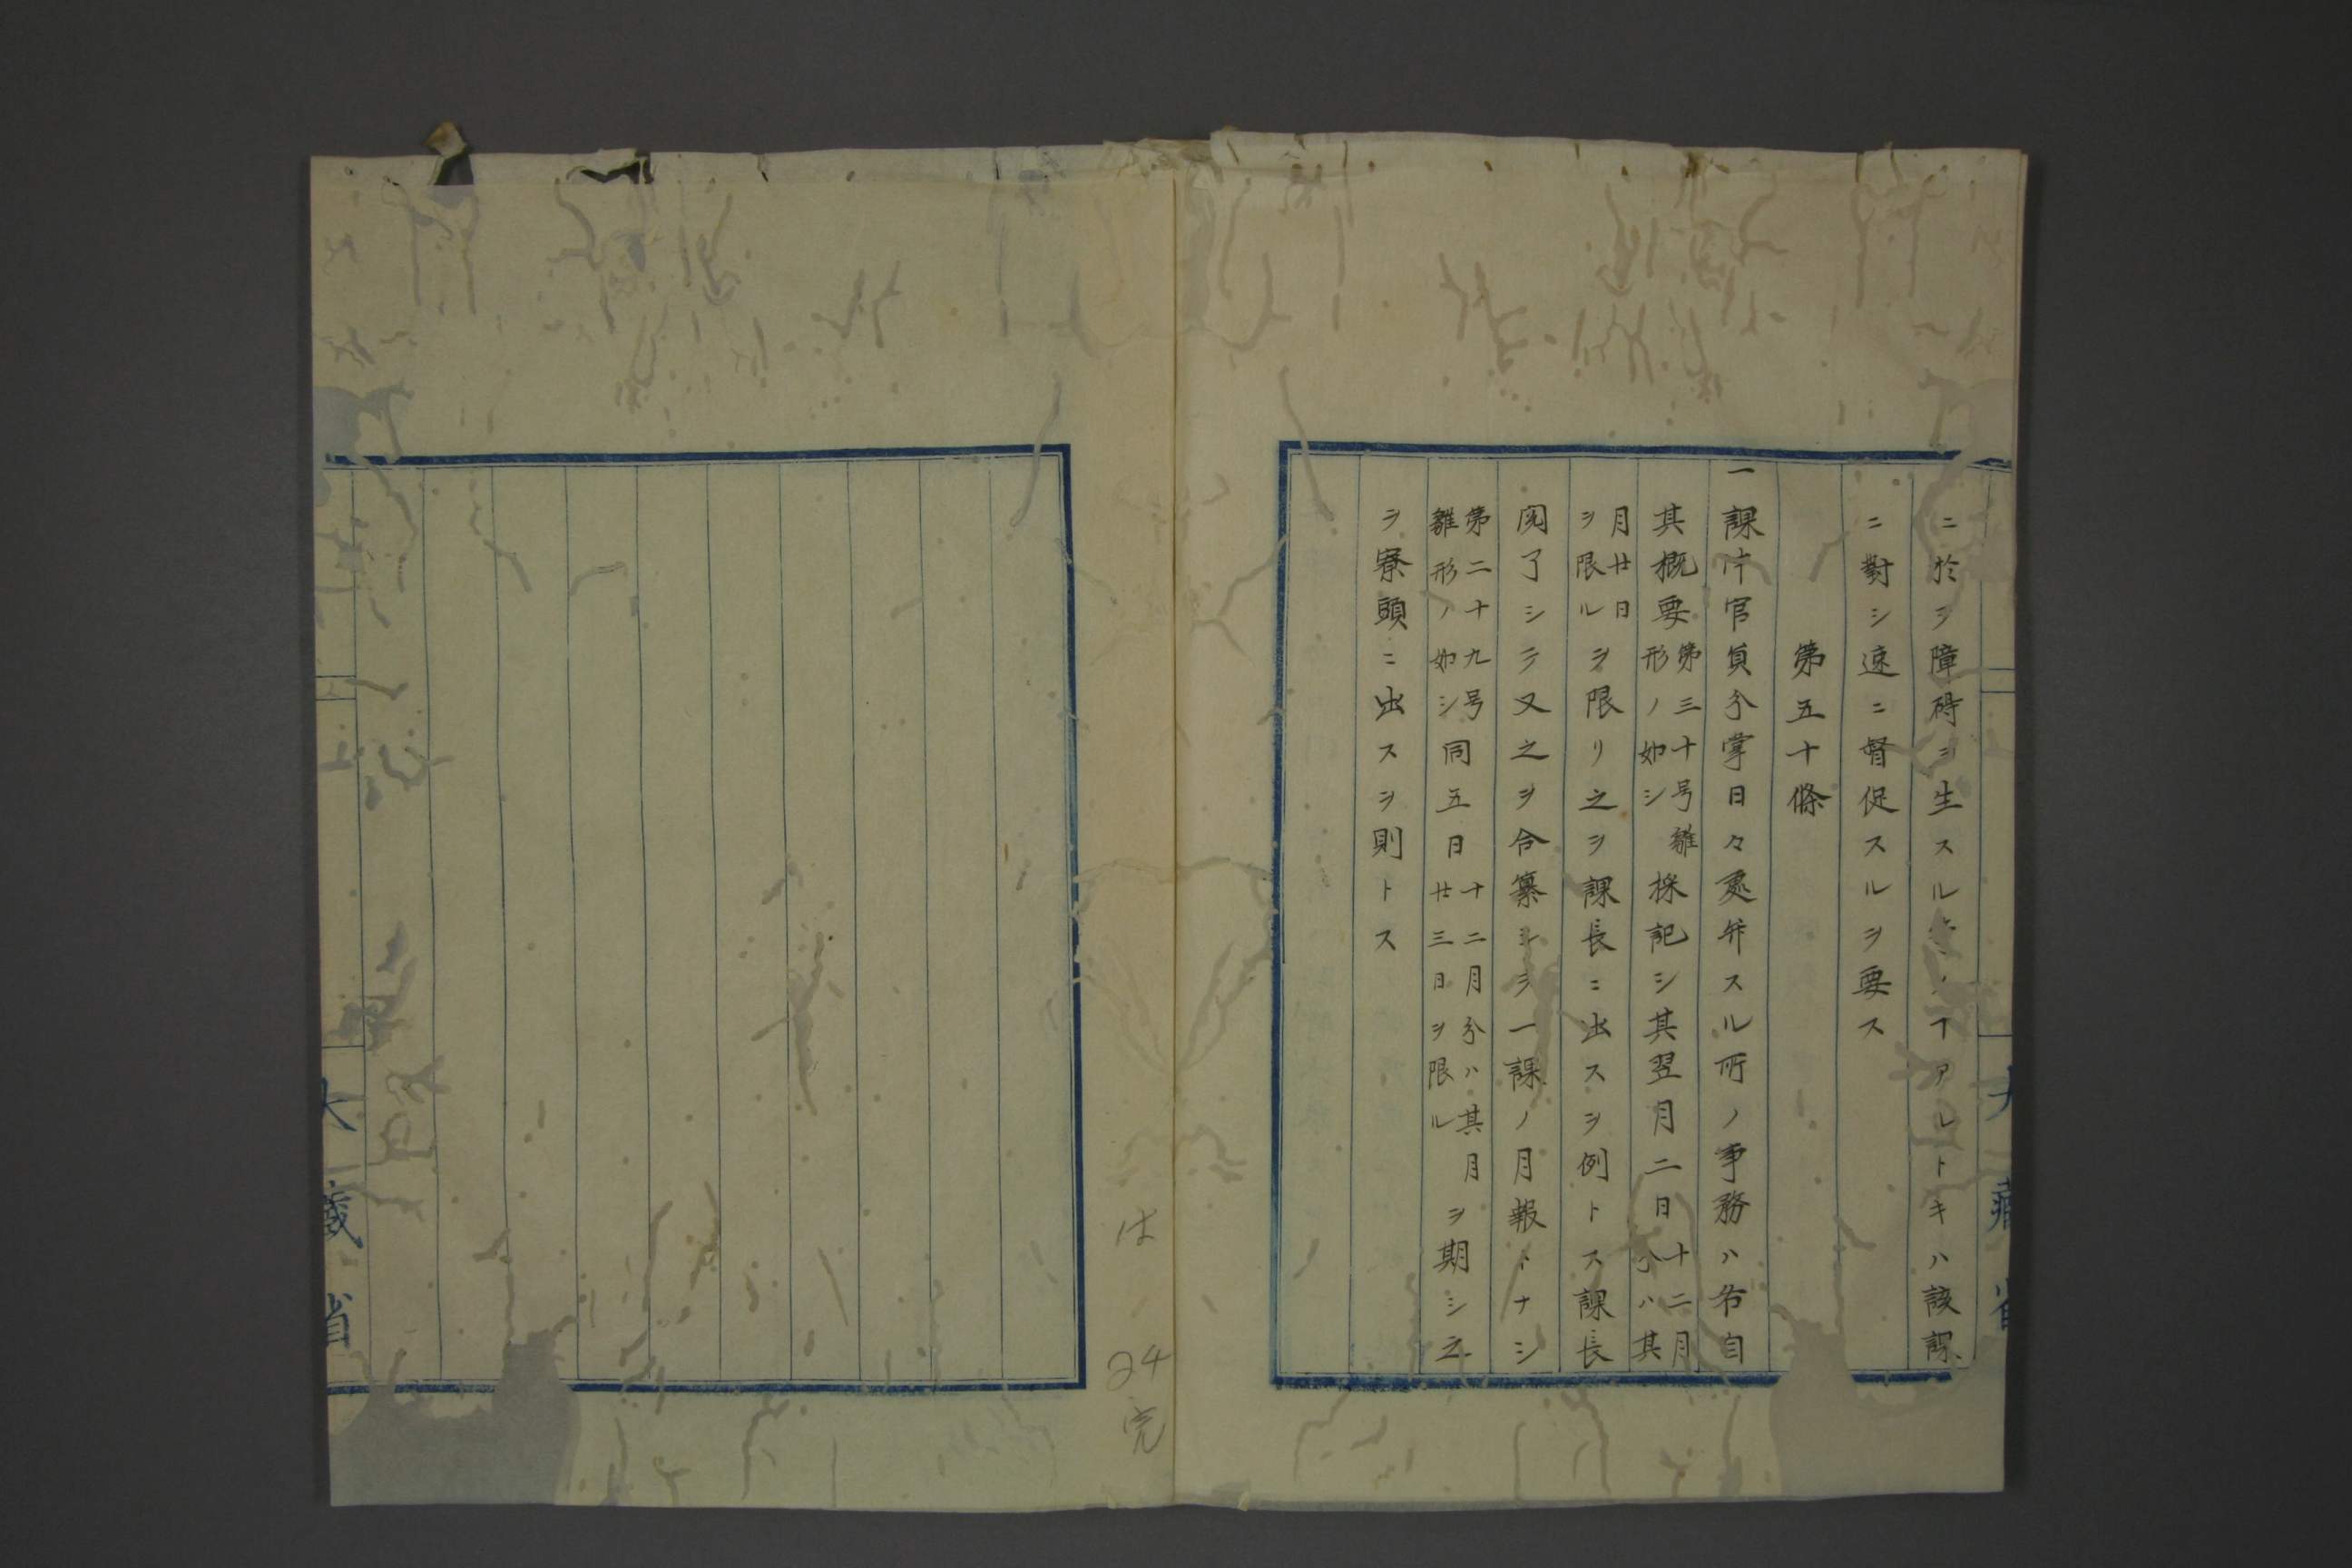 ニ於ヲ障碍ヲ生スルヿアルトキハ該課
ニ對シ速ニ督促スルヲ要ス
第五十條
一課中官員分掌日々處弁スル所ノ事務ハ各自
其概要第三十号雛形ノ如シ採記シ其翌月二日十二月分ハ其
月廿日ヲ限ルヲ限リ之ヲ課長ニ出スヲ例トス課長
閲了シテ又之ヲ合纂シテ一課ノ月報トナシ
第二十九号雛形ノ如シ同五日十二月分ハ其月廿三日ヲ限ルヲ期シ之
ヲ寮頭ニ出スヲ則トス
大藏省
は
24
完
大蔵省